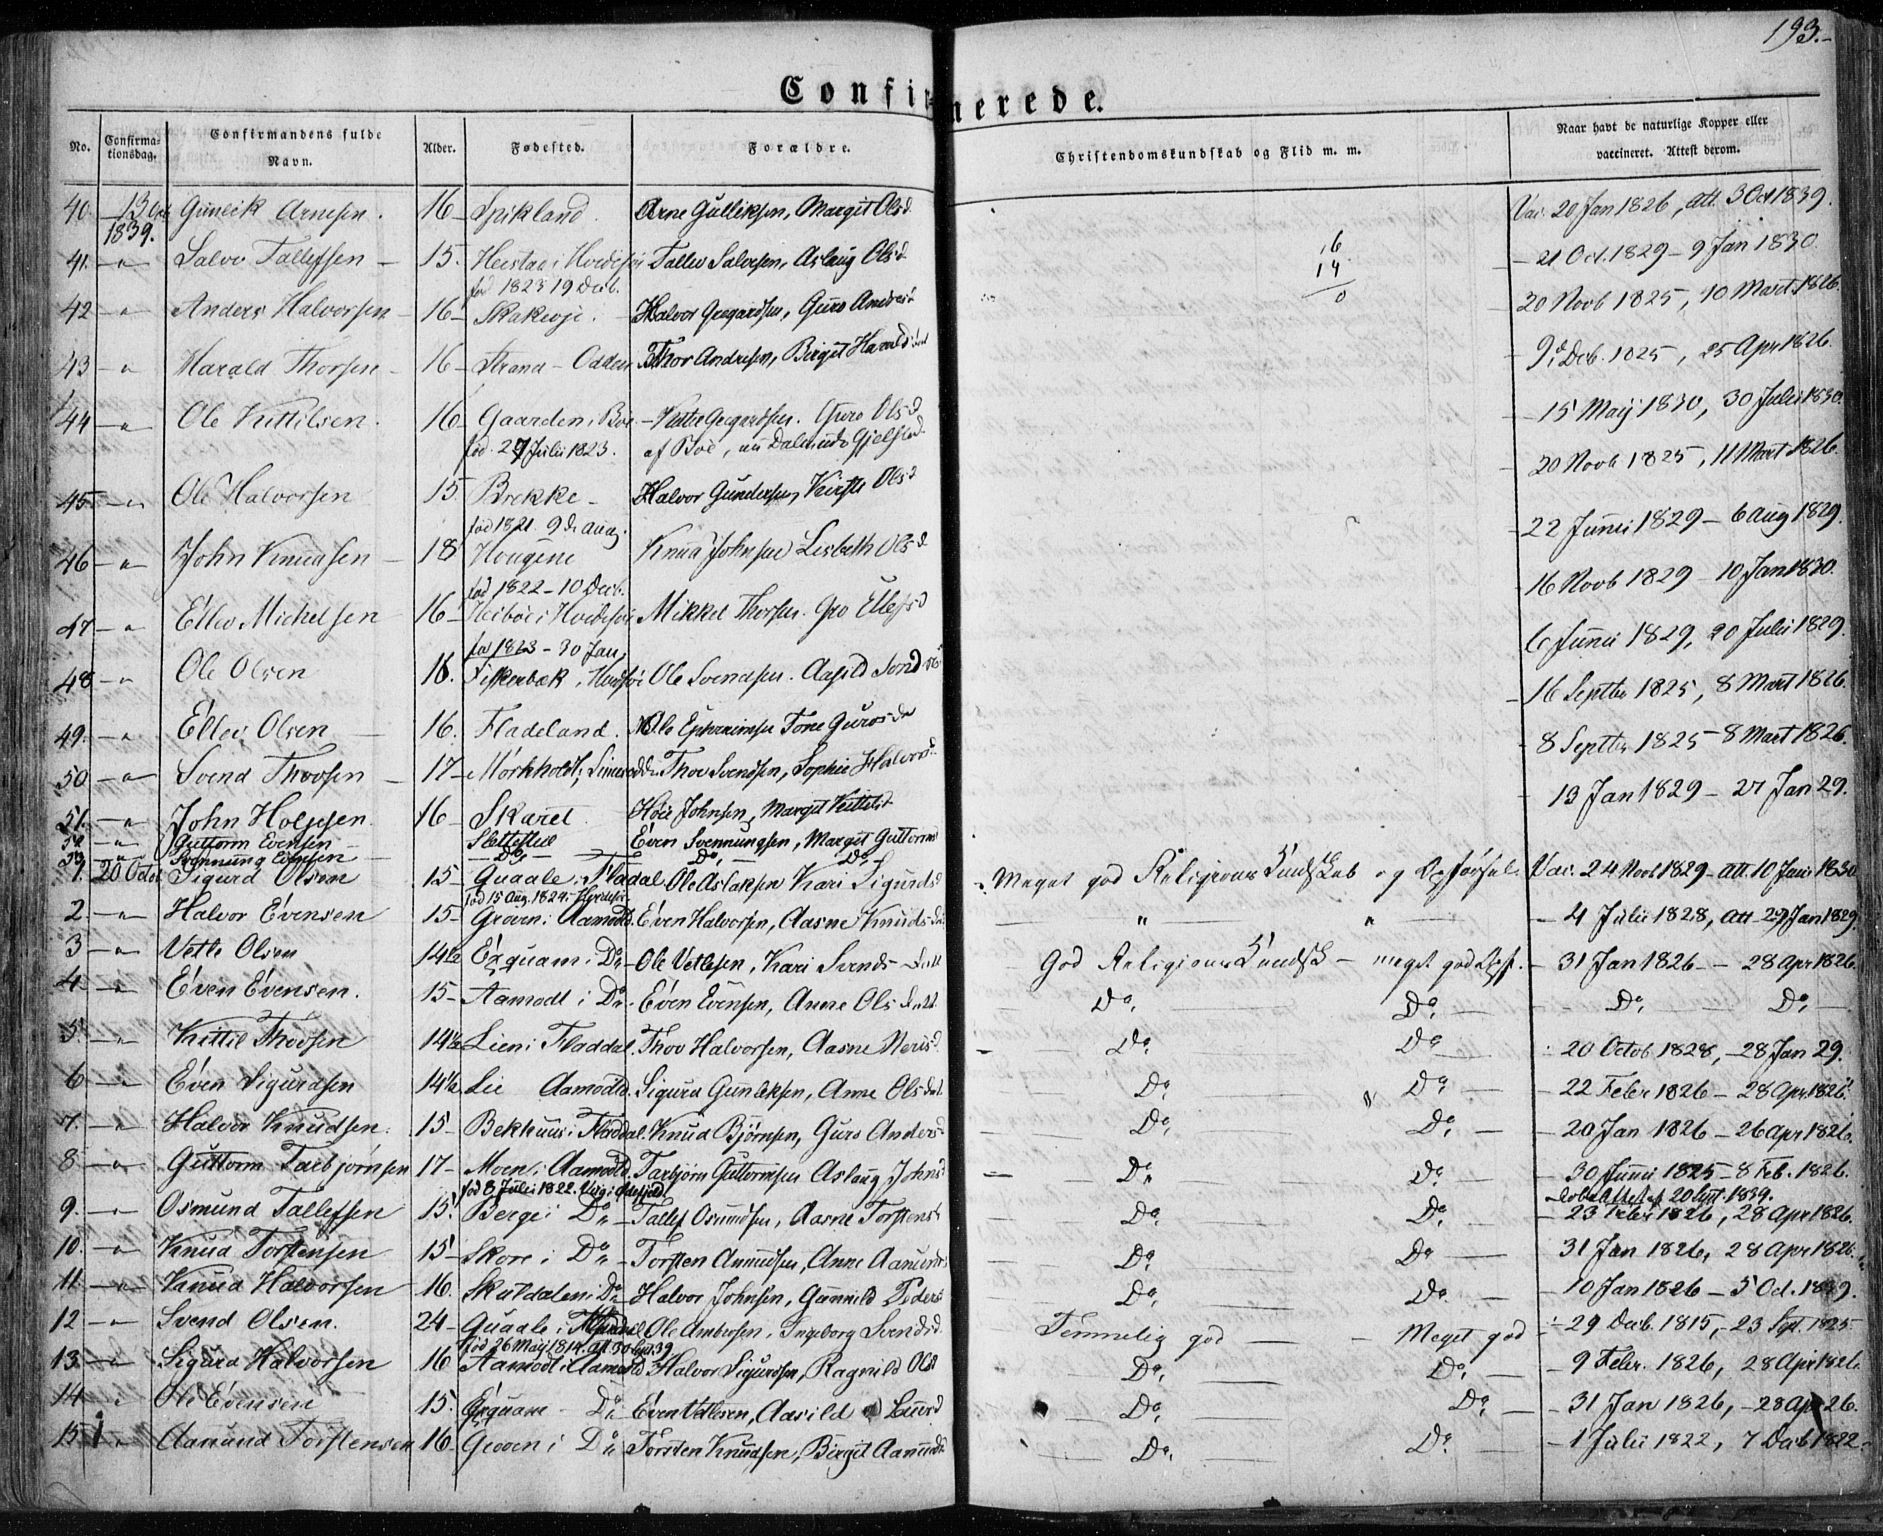 193.-
Confirmerede.
No. Confirmationsdag. Confirmandens fulde Navn. Alder. Fødested. Forældre. Christendomskundskab og Flid m. m. Naar havt de naturlige Kopper eller vaccineret. Attest derom.
40. 13 Oct 1839. Gunleik Arnesen. 16 Spikland. Arne Gulliksen, Margit Olsd Vac. 20 Jan 1826, att. 3 Oct 1839.
41. " Salve Tallefsen 15. Tallev Salvesen, Aslaug Olsd 16 - 21 Oct. 1829 - 9 Jan 1830.
fød 1823 19 Decb. 14
0
42 " Anders Halvorsen 16 Skakevje. Halvor Gregardsen, Guro Andersd 30 Novb 1825, 10 Mart 1826.
43 " Harald Thorsen 16 Strand - Odden Thor Andersen, Birgit Harald 9de Decb. 1825, 25 Apr 1826.
44 " Ole Kittilsen. 16 Gaarden i Bøe Gregardsen. Guro Olsd - 15 Maji 1830, 30 Julii 1830.
fød. 27 Julii 1823. af Bøe, nu
45. " Ole Halvorsen 15 Brekke - Halvor Gundersen, Kirsti Olsd 30 Novb 1825, 11 Mart 1826.
fød 1821. 9de Aug.
46 " John Knudsen 18 Hougene Knud Johnsen Lisbeth Olsd - 22 Junii 1829 - 6 Aug 1829.
fød 1822 - 10 Decb.
47 " Ellev Michelsen 16 Mikkel Thorsen. Gro Ellefsd - 16 Novb 1829 - 10 Jan 1830.
fød 1823 - 30 Jan.
48 " Ole Olsen 16. Fiskerbæk i Ole Svendsen. 6 Junii 1829, 20 Julii 1829.
49. " Ellev Olsen 16. Fladeland. Ole Ephraimsen Tone - 16 Septbr 1825, 8 Mart 1826.
50 " Svend Thovsen 17 Mørkholdt, Thov Svendsen, Sophie Halvors 8 Septbr 1825 8 Mart 1826.
51. " John 16 Skaret. Johnsen, Margit Kittilsd 13 Jan 1829 - 27 Jan 29.
52 " Guttorm Evensen Slettestul Even Svennungsen, Margit Guttorms
53 " Svennung Evensen - Do - Do, - Do -
1. 20 Octob Sigurd Olsen 15 Quaale i Fladdal Ole Aslaksen Kari Sigurdsd Meget god Religions Kundskab og Opførsel. Vac. 24 Novb 1829 - att. 10 Jan 1830
fød 15 Aug. 1824 i
2. " Halvor Evensen 15 Groven i Aamodtd. Even Halvorsen, Aasne Knudsd " " - 4 Julii 1828, att 29 Jan 1829.
3 " Vetle Olsen 14½ Exquam i Do - Ole Vetlesen, Kari Svends - Datt God Religions Kundsk - meget god Opf. - 31 Jan 1826 - 28 Apr 1826.
4. " Even Evensen. 15 Aamodt i Do - Even Evensen, Anne Ols datt Do Do. Do, Do,
5. " Kittil Thovsen 14½ Lien i Fladdal. Thov Halvorsen, Aasne Nerisd. Do. Do 20 Octob 1828, - 28 Jan 29.
6 " Even Sigurdsen 14½ Lie Aamodtd. Sigurd Gunleksen, Anne Olsdat Do " Do. - 22 Febr 1826 - 28 Apr 1826.
7. " Halvor Knudsen. 15 Bekhuus i Fladdal. Knud Bjørnsen, Guro Andersd Do. Do. - 20 Jan 1826 - 26 Apr 1826.
8 " Guttorm Tarbjørnsen 17 Moen i Aamodtd. Tarbjørn Guttormsen Aslaug Johnsd Do Do. - 30 Junii 1825 - 8 Feb. 1826.
fød 8 Julii 1822. 20 Sept. 1839.
9. " Osmund Tallefsen 15. Berge i Do - Tallef Osmundsen, Aasne Torstensd Do. Do. - 23 Febr 1826, 28 Apr 1826.
10. " Knud Torstensen 15 Skore i Do - Torsten Amundsen, Anne Aamunds Do. Do 31 Jan 1826, 28 Apr 1826.
11 " Knud Halvorsen 16. Skuldalen i Do Halvor Johnsen, Gunnild Peders Do. Do. - 10 Jan 1826 - 5 Oct. 1839.
12 " Svend Olsen. 24 Quaale i Ole Ambrosen, Ingeborg Svendsd. Temmelig god - Meget god - 29 Decb. 1815, 23 Sept. 1825
fød 26 Maj 1814. att. 30 39
13 " Sigurd Halvorsen 16 Aamodt i Aamodtd Halvor Sigurdsen, Ragnild Olsd Do. Do. - 9 Febr. 1826, 28 Apr 1826.
14. " Ole Evensen 15. Exquam - Do. Even Vetlesen, Aasild Do. Do. - 31 Jan 1826, - 28 Apr 26.
15 " Aamund Torstensen 16 Groven i Do Torsten Knudsen, Birgit Aamunds Do. Do. - 1 Julii 1822, 7 Decb 1822.